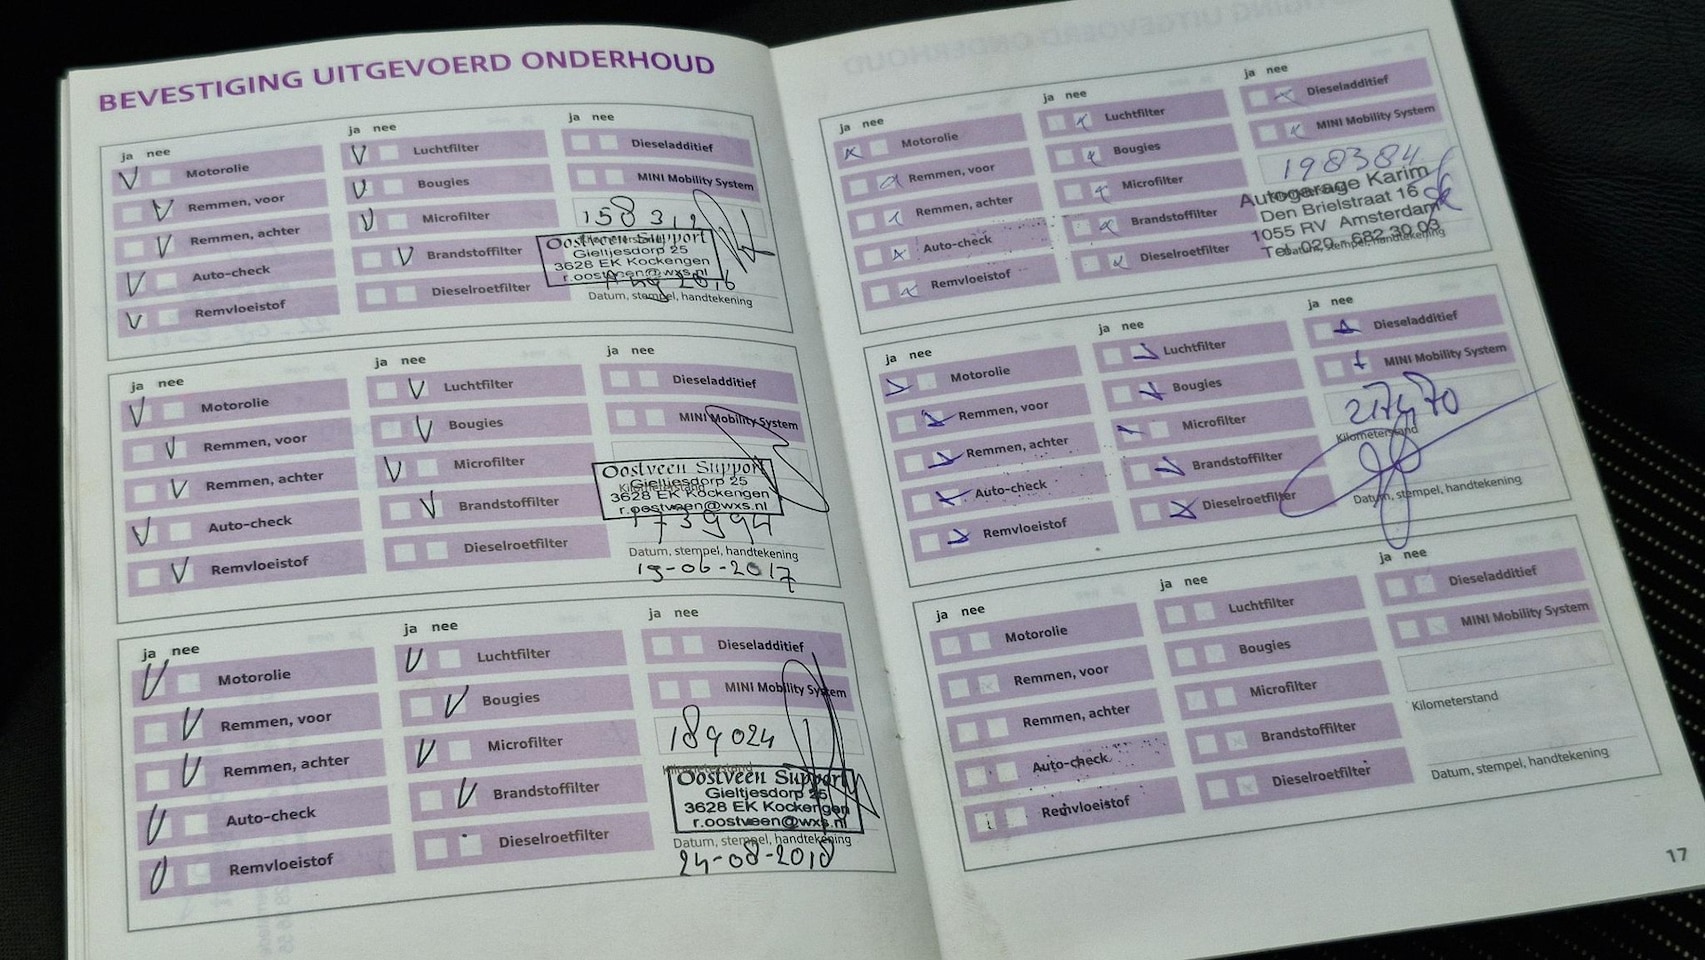 BEVESTIGING UITGEVOERD ONDERHOUD
ja nee
Motorolie
Remmen, voor
Remmen, achter
Auto-check
Remvloeistof
ja nee
Luchtfilter
Bougies
Microfilter
Brandstoffilter
Dieselroetfilter
ja nee
Dieseladditief
MINI Mobility System
158312
Oostveen Support
Gieltjesdorp 25
3628 EK Kockengen
r.oostveen@wxs.nl
Aug 2016
Datum, stempel, handtekening
ja nee
Motorolie
Remmen, voor
Remmen, achter
Auto-check
Remvloeistof
ja nee
Luchtfilter
Bougies
Microfilter
Brandstoffilter
Dieselroetfilter
ja nee
Dieseladditief
MINI Mobility System
Kilometerstand
Oostveen Support
Gieltjesdorp 25
3628 EK Kockengen
r.oostveen@wxs.nl
173994
Datum, stempel, handtekening
19-06-2017
ja nee
Motorolie
Remmen, voor
Remmen, achter
Auto-check
Remvloeistof
ja nee
Luchtfilter
Bougies
Microfilter
Brandstoffilter
Dieselroetfilter
ja nee
Dieseladditief
MINI Mobility System
189024
Kilometerstand
Oostveen Support
Gieltjesdorp 25
3628 EK Kockengen
r.oostveen@wxs.nl
Datum, stempel, handtekening
24-08-2018
ja nee
Motorolie
Remmen, voor
Remmen, achter
Auto-check
Remvloeistof
ja nee
Luchtfilter
Bougies
Microfilter
Brandstoffilter
Dieselroetfilter
ja nee
Dieseladditief
MINI Mobility System
198384
Autogarage Karim
Den Brielstraat 16
1055 RV Amsterdam
Tel. 020 - 682 30 03
Datum, stempel, handtekening
ja nee
Motorolie
Remmen, voor
Remmen, achter
Auto-check
Remvloeistof
ja nee
Luchtfilter
Bougies
Microfilter
Brandstoffilter
Dieselroetfilter
ja nee
Dieseladditief
MINI Mobility System
Kilometerstand
Datum, stempel, handtekening
ja nee
Motorolie
Remmen, voor
Remmen, achter
Auto-check
Remvloeistof
ja nee
Luchtfilter
Bougies
Microfilter
Brandstoffilter
Dieselroetfilter
ja nee
Dieseladditief
MINI Mobility System
Kilometerstand
Datum, stempel, handtekening
17